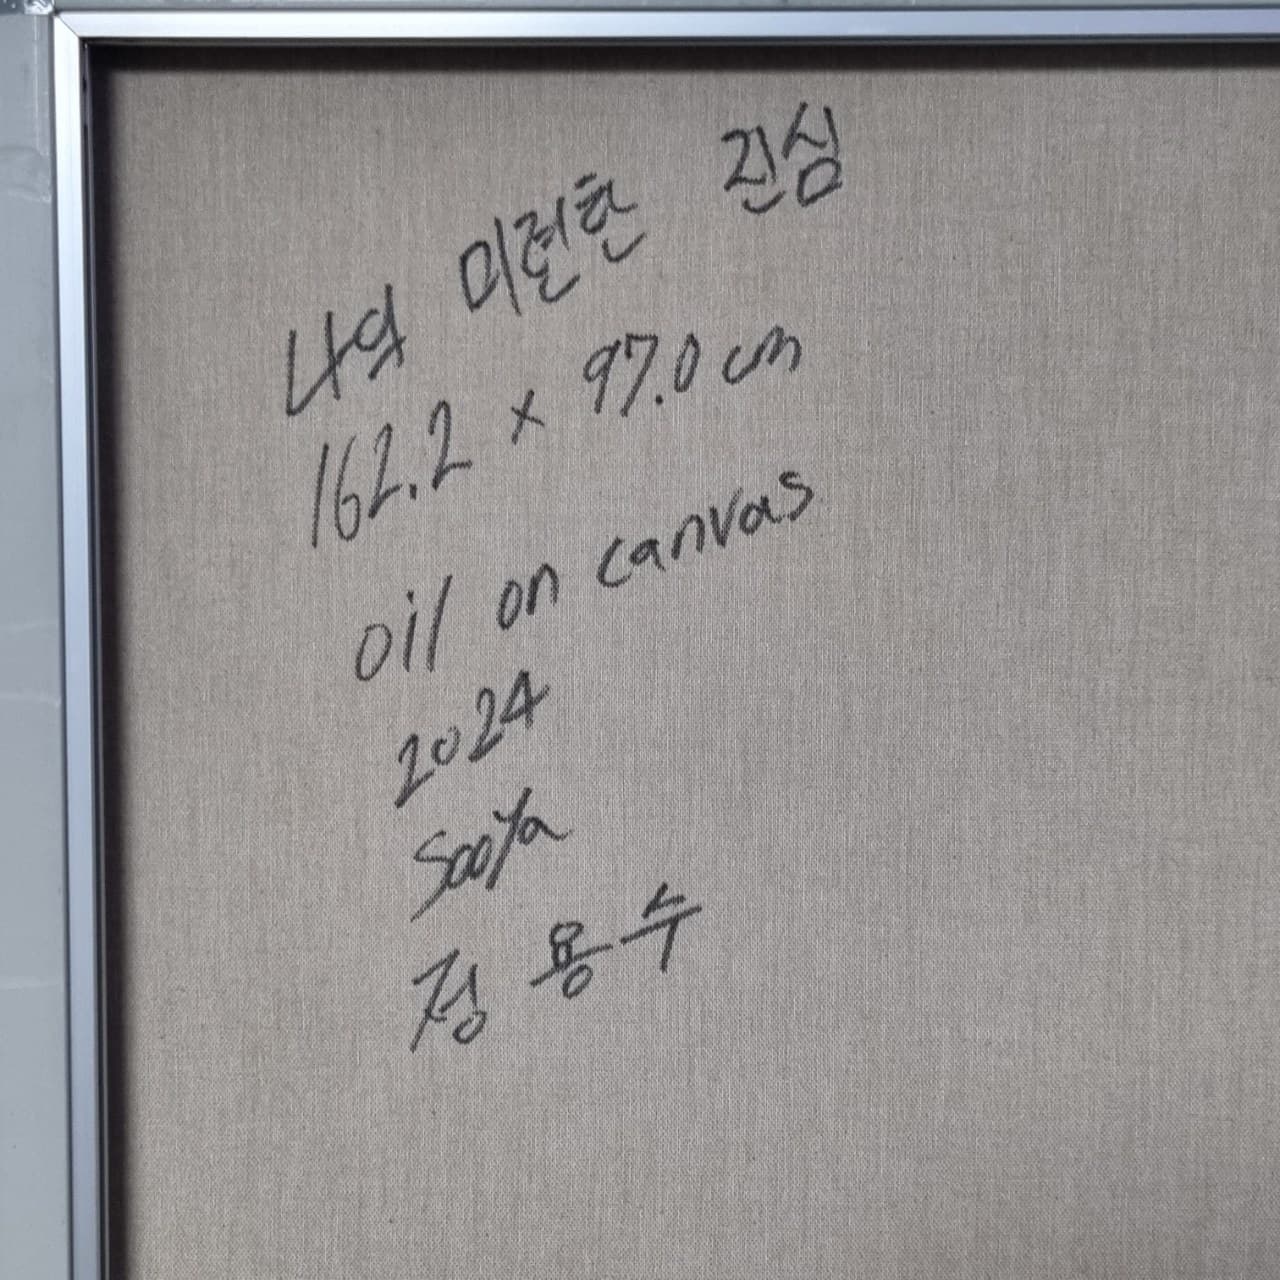 나의 미련한 진심
162.2 x 97.0 cm
oil on canvas
2024
SooYa
정용수